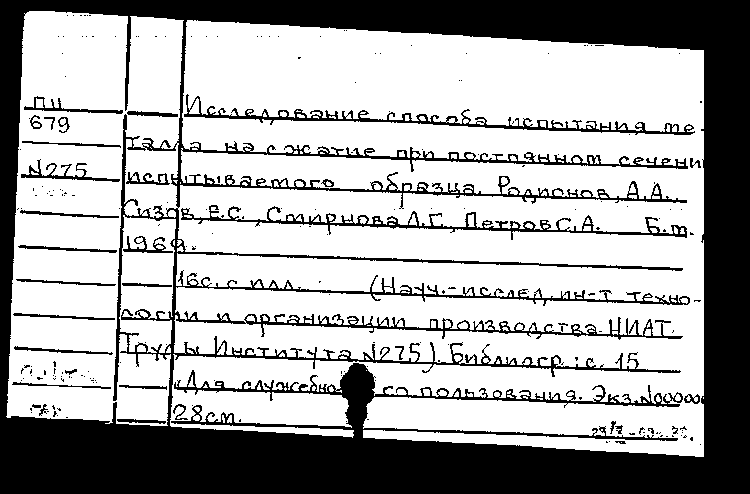 ПИ
679
N275
Исследование способа испытания ме-
талла на сжатие при постоянном сечении
испытываемого образца. Родионов, А.А.,
Сизов, Е.С., Смирнова Л.Г., Петров С.А. Б.м.,
1969.
16с. с илл. (Науч.-исслед. ин-т техно-
логии и организации производства НИАТ.
Труды Института N275). Библиогр.: с. 15
«Для служебного пользования. Экз. N000000
28см.